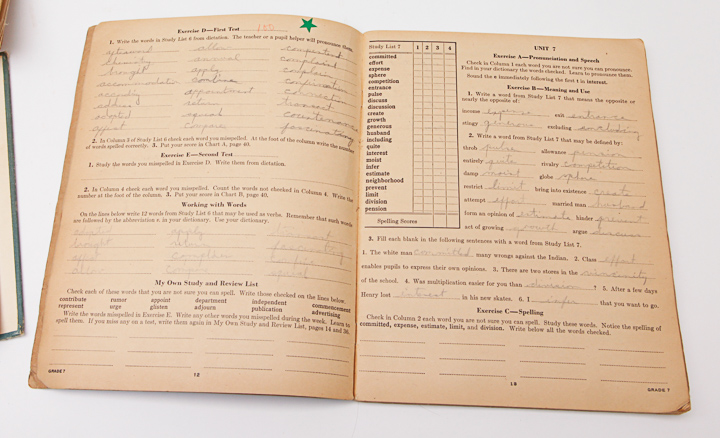 Exercise D—First Test 100
1. Write the words in Study List 6 from dictation. The teacher or a pupil helper will pronounce them.
allow
chemistry annual complained
brought apply complaint
accommodation combine
according appointment connection
address return transact
adopted spiral
appoint compare
2. In Column 3 of Study List 6 check each word you misspelled. At the foot of the column write the number
of words spelled correctly. 3. Put your score in Chart A, page 40.
Exercise E—Second Test
1. Study the words you misspelled in Exercise D. Write them from dictation.
2. In Column 4 check each word you misspelled. Count the words not checked in Column 4. Write the
number at the foot of the column. 3. Put your score in Chart B, page 40.
Working with Words
On the lines below write 12 words from Study List 6 that may be used as verbs. Remember that such words
are followed by the abbreviation v. in your dictionary. Use your dictionary.
apply
brought return
complain
allow spiral
My Own Study and Review List
Check each of these words that you are not sure you can spell. Write those checked on the lines below.
contribute rumor appoint department independent commencement
represent urge gluten adjourn publication advertising
Write the words misspelled in Exercise E. Write any other words you misspelled during the week. Learn to
spell them. If you miss any on a test, write them again in My Own Study and Review List, pages 14 and 30.
GRADE 7
12
Study List 7 1 2 3 4
committed
effort
expense
sphere
competition
entrance
pulse
discuss
discussion
create
growth
generous
husband
including
quite
interest
moist
infer
estimate
neighborhood
prevent
limit
division
pension
Spelling Scores
UNIT 7
Exercise A—Pronunciation and Speech
Check in Column 1 each word you are not sure you can pronounce.
Find in your dictionary the words checked. Learn to pronounce them.
Sound the s immediately following the first t in interest.
Exercise B—Meaning and Use
1. Write a word from Study List 7 that means the opposite or
nearly the opposite of:
income expense exit entrance
stingy generous excluding including
2. Write a word from Study List 7 that may be defined by:
throb pulse allowance pension
entirely quite rivalry competition
damp moist globe sphere
restrict limit bring into existence create
attempt effort married man husband
form an opinion of estimate hinder prevent
act of growing growth argue discuss
3. Fill each blank in the following sentences with a word from Study List 7.
1. The white man committed many wrongs against the Indian. 2. Class effort
enables pupils to express their own opinions. 3. There are two stores in the
of the school. 4. Was multiplication easier for you than division ? 5. After a few days
Henry lost interest in his new skates. 6. I infer that you want to go.
Exercise C—Spelling
Check in Column 2 each word you are not sure you can spell. Study these words. Notice the spelling of
committed, expense, estimate, limit, and division. Write below all the words checked.
13
GRADE 7